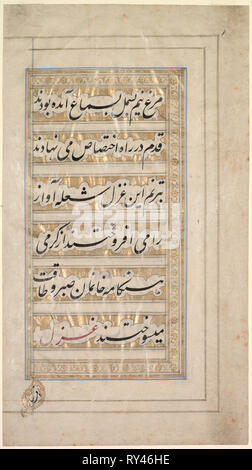 مرغ نیم بسمل بسماع آمده بودند
قدم در راه اختصاص می نهادند
بترنم این غزل شعله آواز
را می افروختند از گرمی
هنگامه خانمان صبر و طاقت
میسوختند غزل
alamy
RY46HE